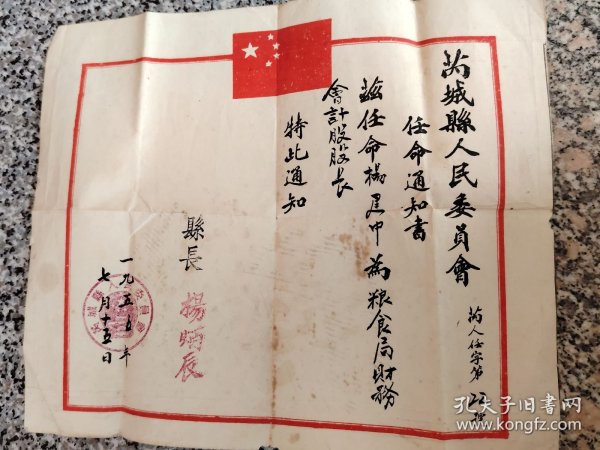 芮城縣人民委員會
任命通知書
芮人任字第22号
茲任命楊建中為粮食局財務
會計股股長
特此通知
縣長 楊炳辰
一九五五年
七月十五日
孔夫子旧书网
www.kongfz.com